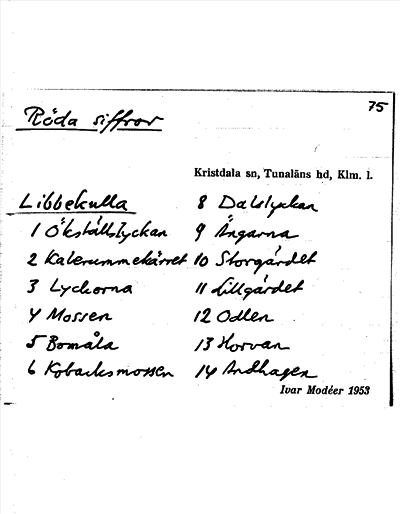 75
Röda siffror
Kristdala sn, Tunaläns hd, Klm. l.
Libbekulla
1 Ökställslyckan
2 Kalerummekärret
3 Lyckorna
4 Mossen
5 Bomåla
6 Kobacksmossen
8 Dalslyckan
9 Ängarna
10 Storgärdet
11 Lillgärdet
12 Odlen
13 Horvan
14 Andhagen
Ivar Modéer 1953